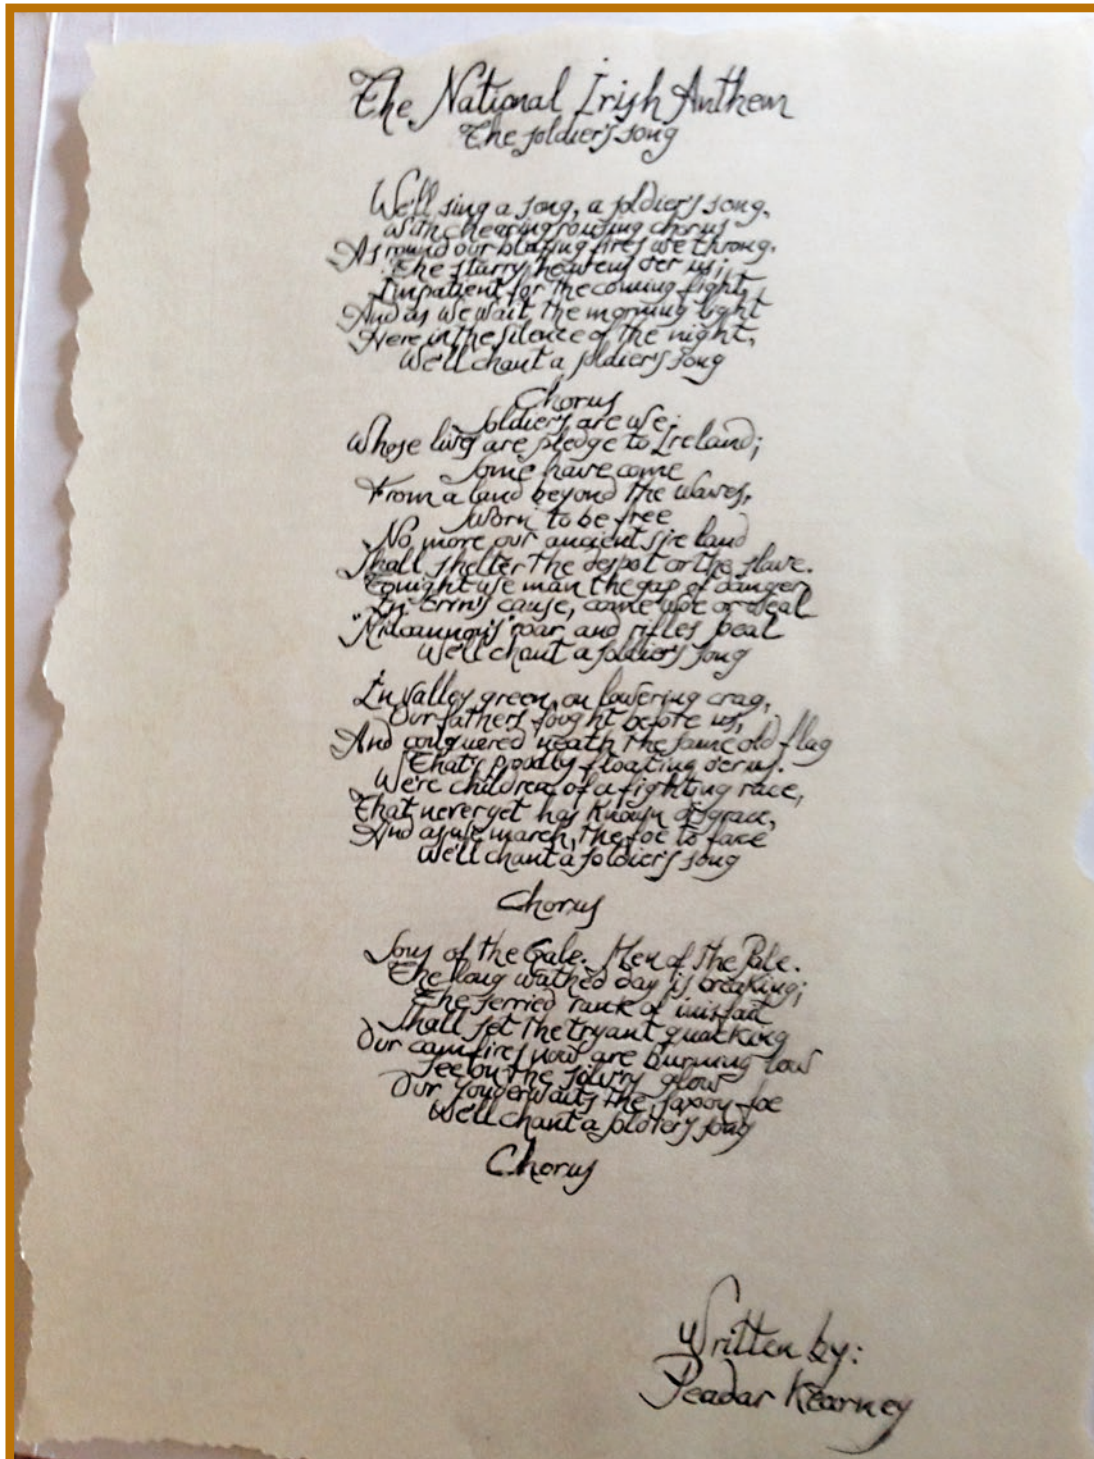 The National Irish Anthem
The soldier's song
We'll sing a song, a soldier's song,
With chearing rousing chorus
As round our blazing fires we throng.
The starry heavens o'er us;
Impatient for the coming fight,
And as we wait the morning light
Here in the silence of the night,
We'll chant a soldier's song
Chorus
Soldiers are we;
Whose lives are pledge to Ireland;
Some have come
From a land beyond the waves,
Sworn to be free
No more our ancient sire land
Shall shelter the despot or the slave.
Tonight we man the gap of danger
In Erin's cause, come woe or weal
'Mid cannons' roar and rifles peal
We'll chant a soldier's song
In valley green, on towering crag,
Our fathers fought before us,
And conquered neath the same old flag
That's proudly floating o'er us.
We're children of a fighting race,
That never yet has known disgrace,
And as we march, the foe to face
We'll chant a soldier's song
Chorus
Sons of the Gale. Men of the Pale.
The long wathed day is breaking;
The serried rank of inisfail
Shall set the tryant quacking
Our camfires now are burning low
See on the glow
Our yonder waits the saxon foe
We'll chant a soldier's song
Chorus
Written by:
Peadar Kearney